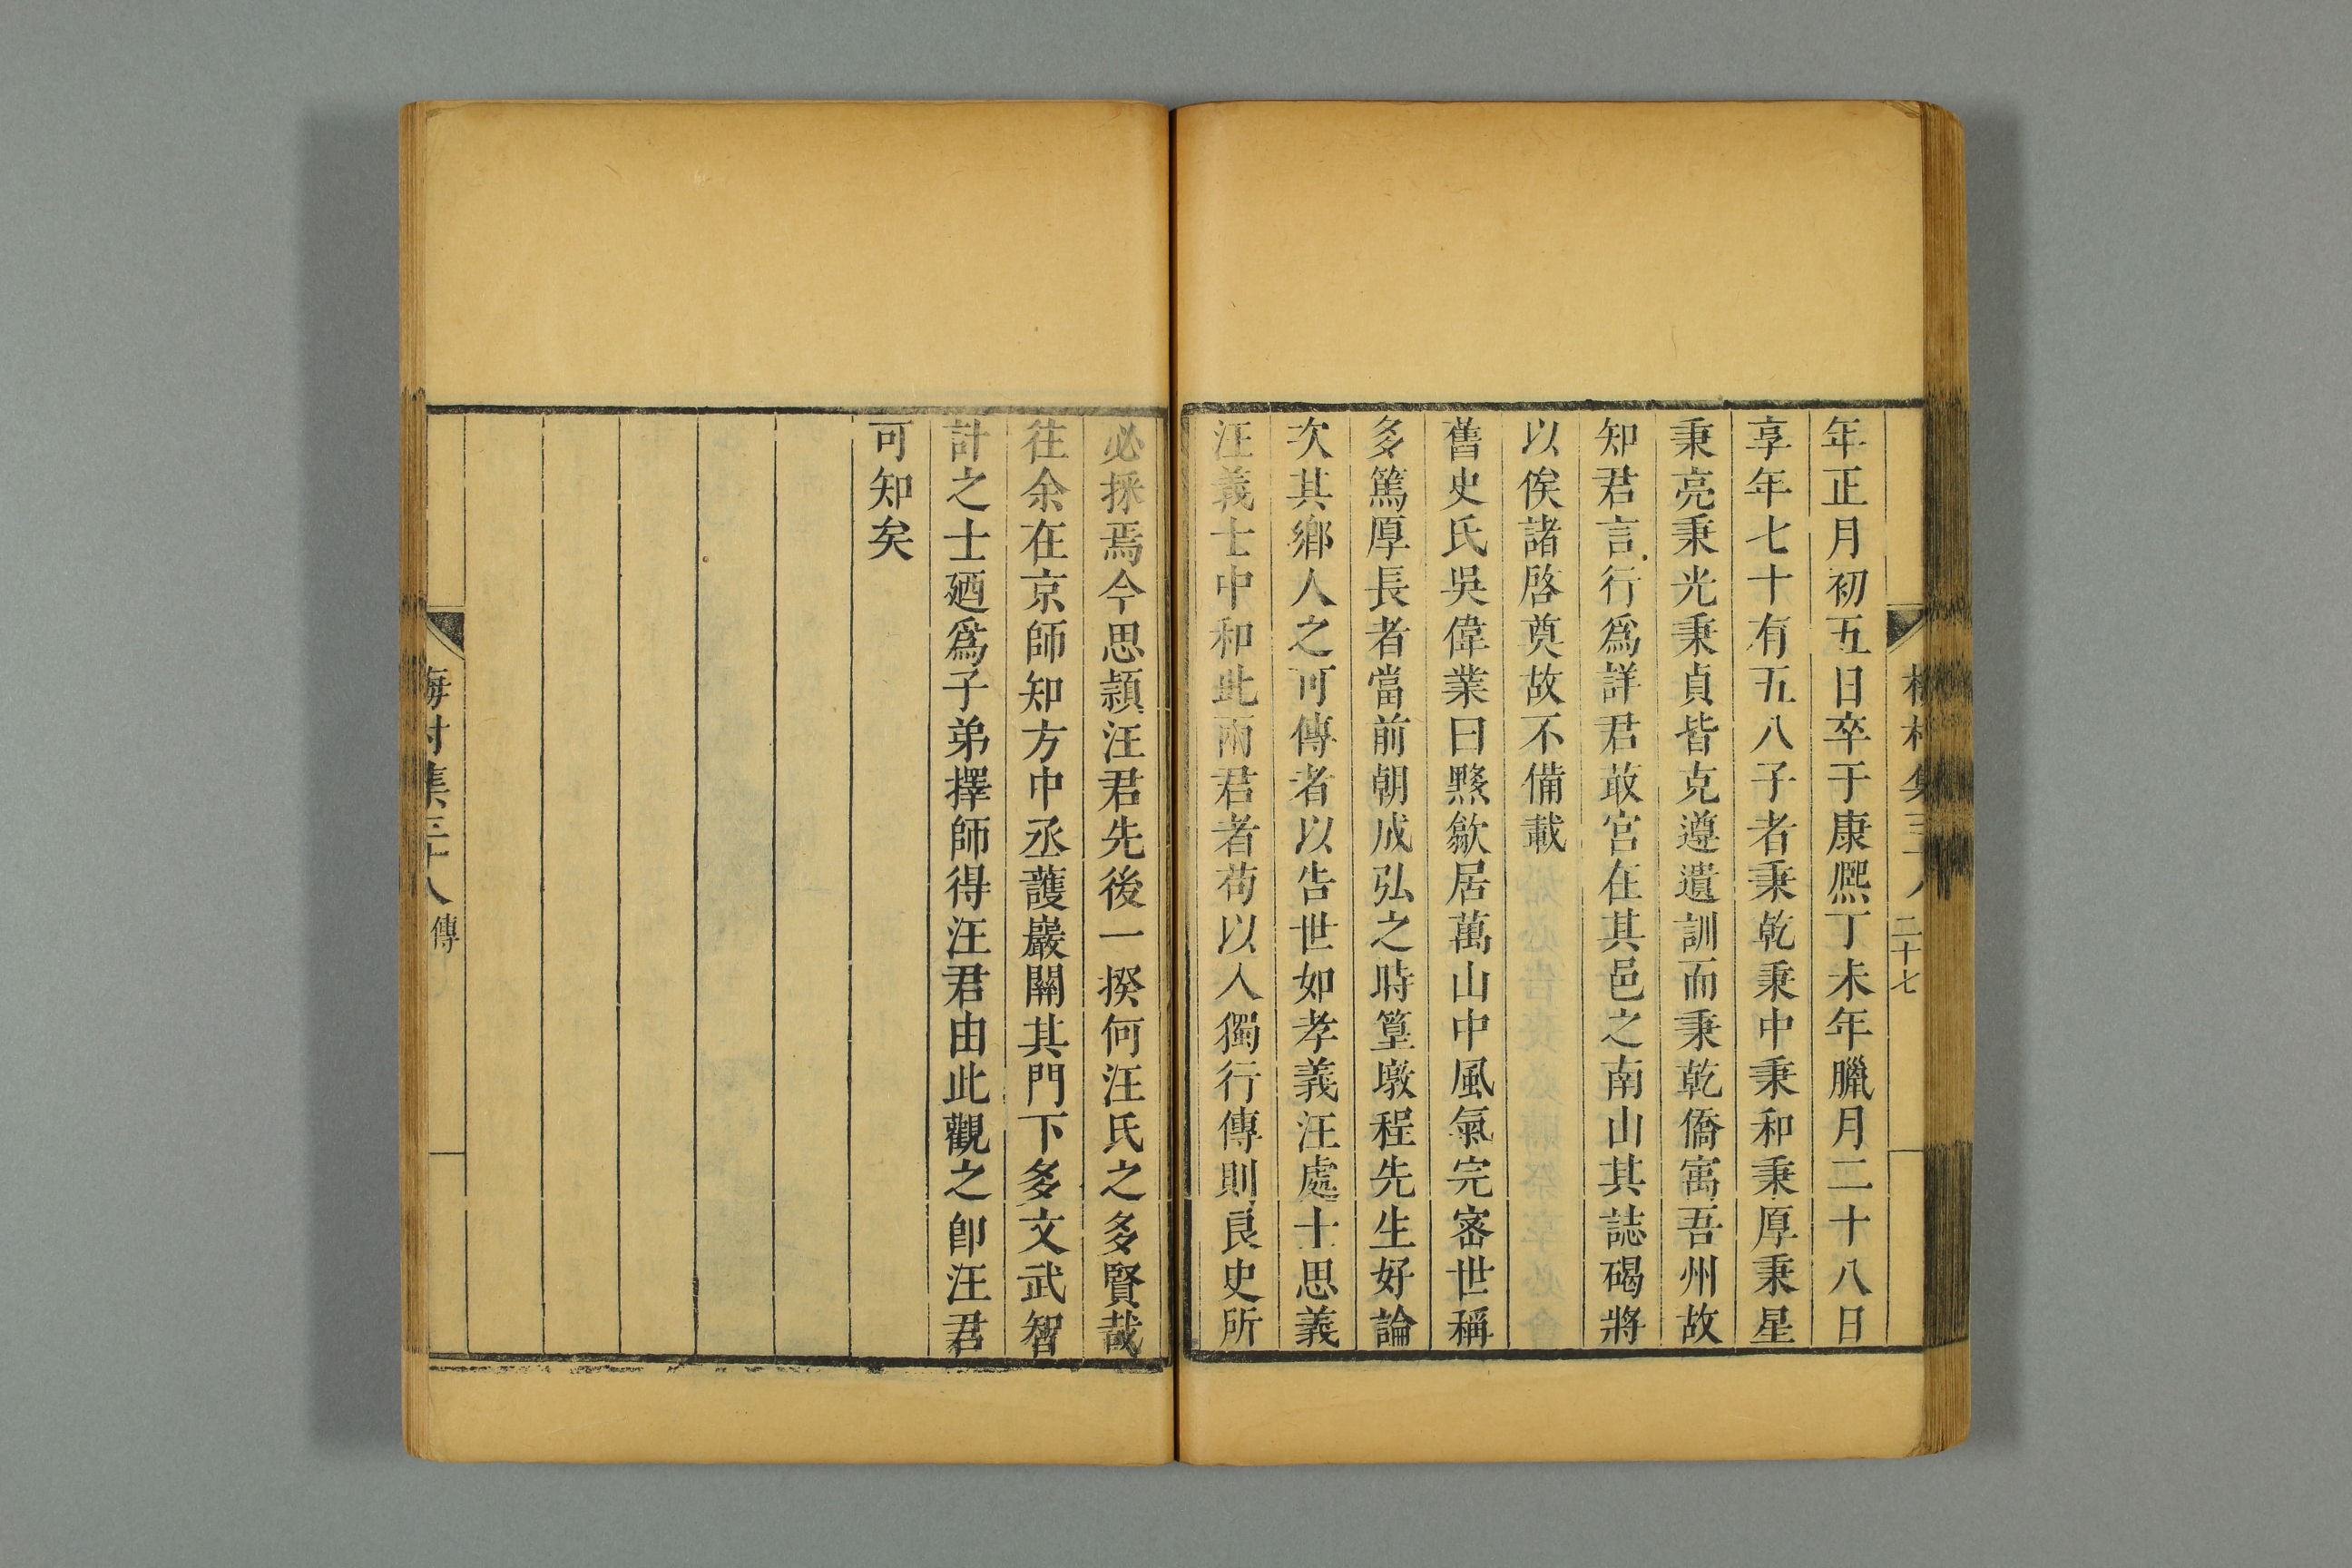 年正月初五日卒于康熈丁未年臘月二十八日
享年七十有五八子者秉乾秉中秉和秉厚秉星
秉亮秉光秉貞皆克遵遺訓而秉乾僑寓吾州故
知君言行爲詳君敢宫在其邑之南山其誌碣將
以俟諸啓奠故不備載
舊史氏吳偉業曰黟歙居萬山中風氣完宻世稱
多篤厚長者當前朝成弘之時篁墩程先生好論
次其鄉人之可傳者以告世如孝義汪處士思義
汪義士中和此兩君者苟以入獨行傳則良史所
必採焉今思頴汪君先後一揆何汪氏之多賢哉
徃余在京師知方中丞蘐巖關其門下多文武智
計之士廼爲子弟擇師得汪君由此觀之卽汪君
可知矣
二十七
梅村集三十八
傳